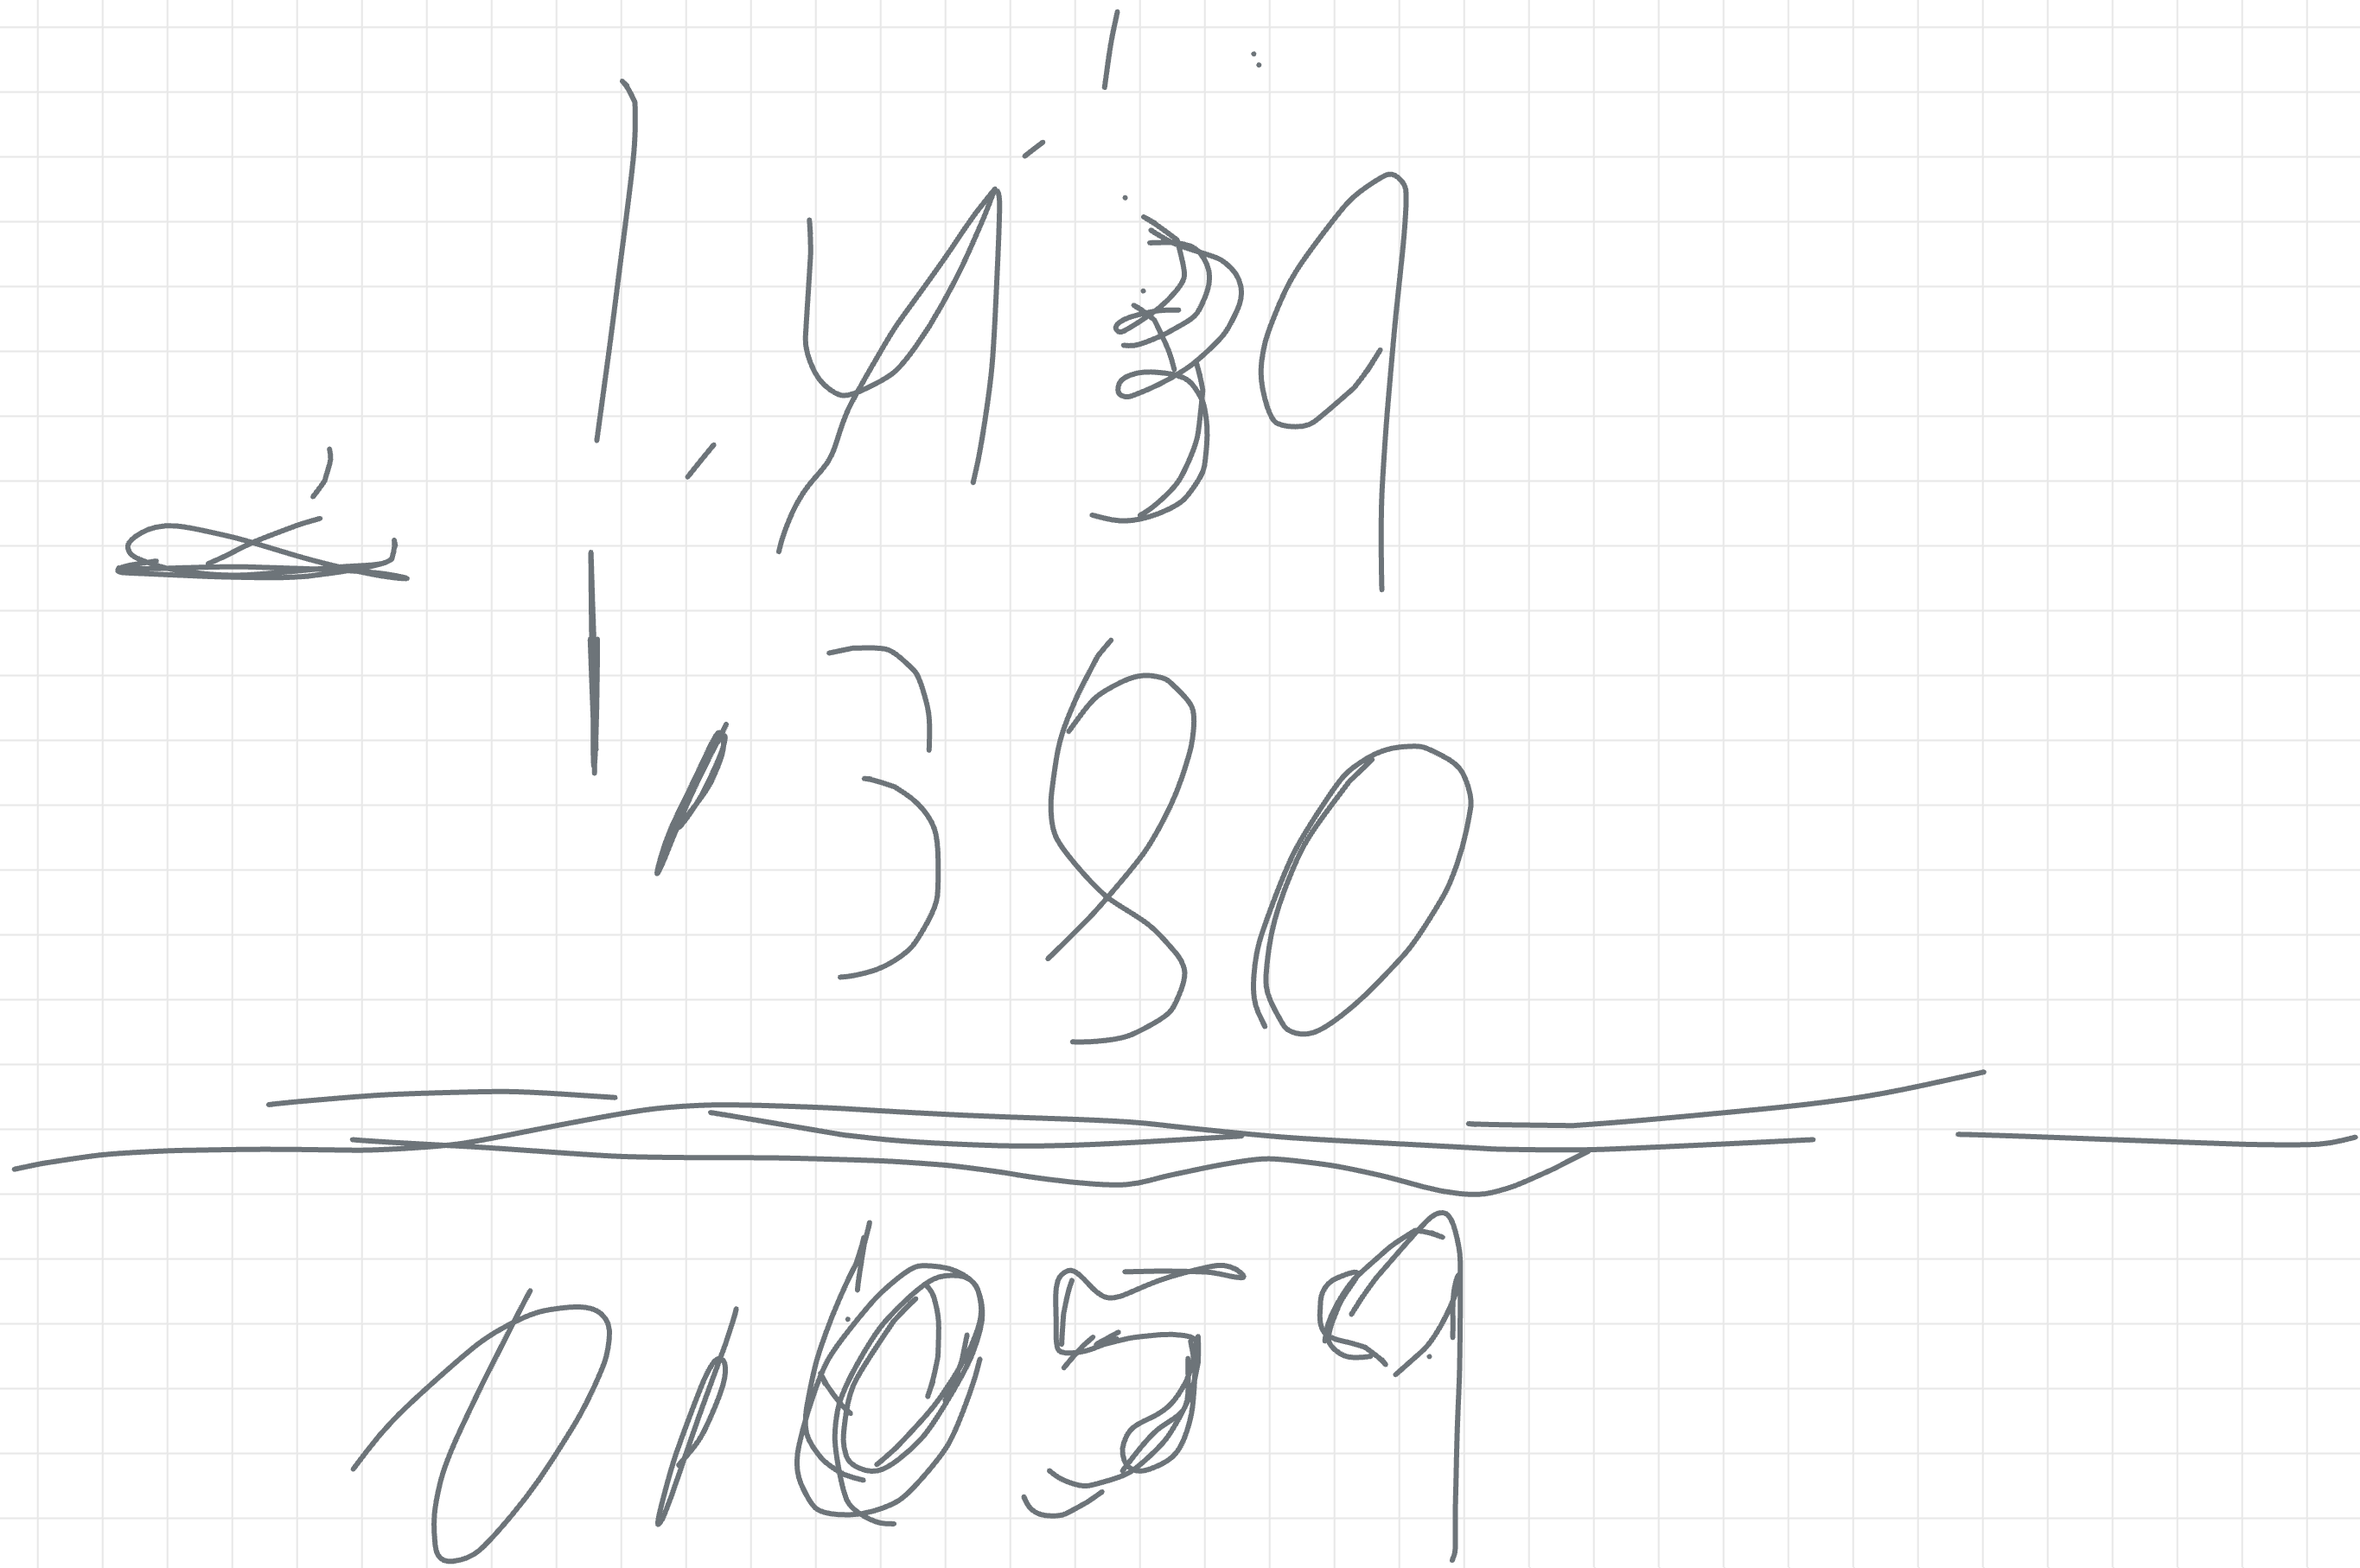 1,439
- 1,380
0,059